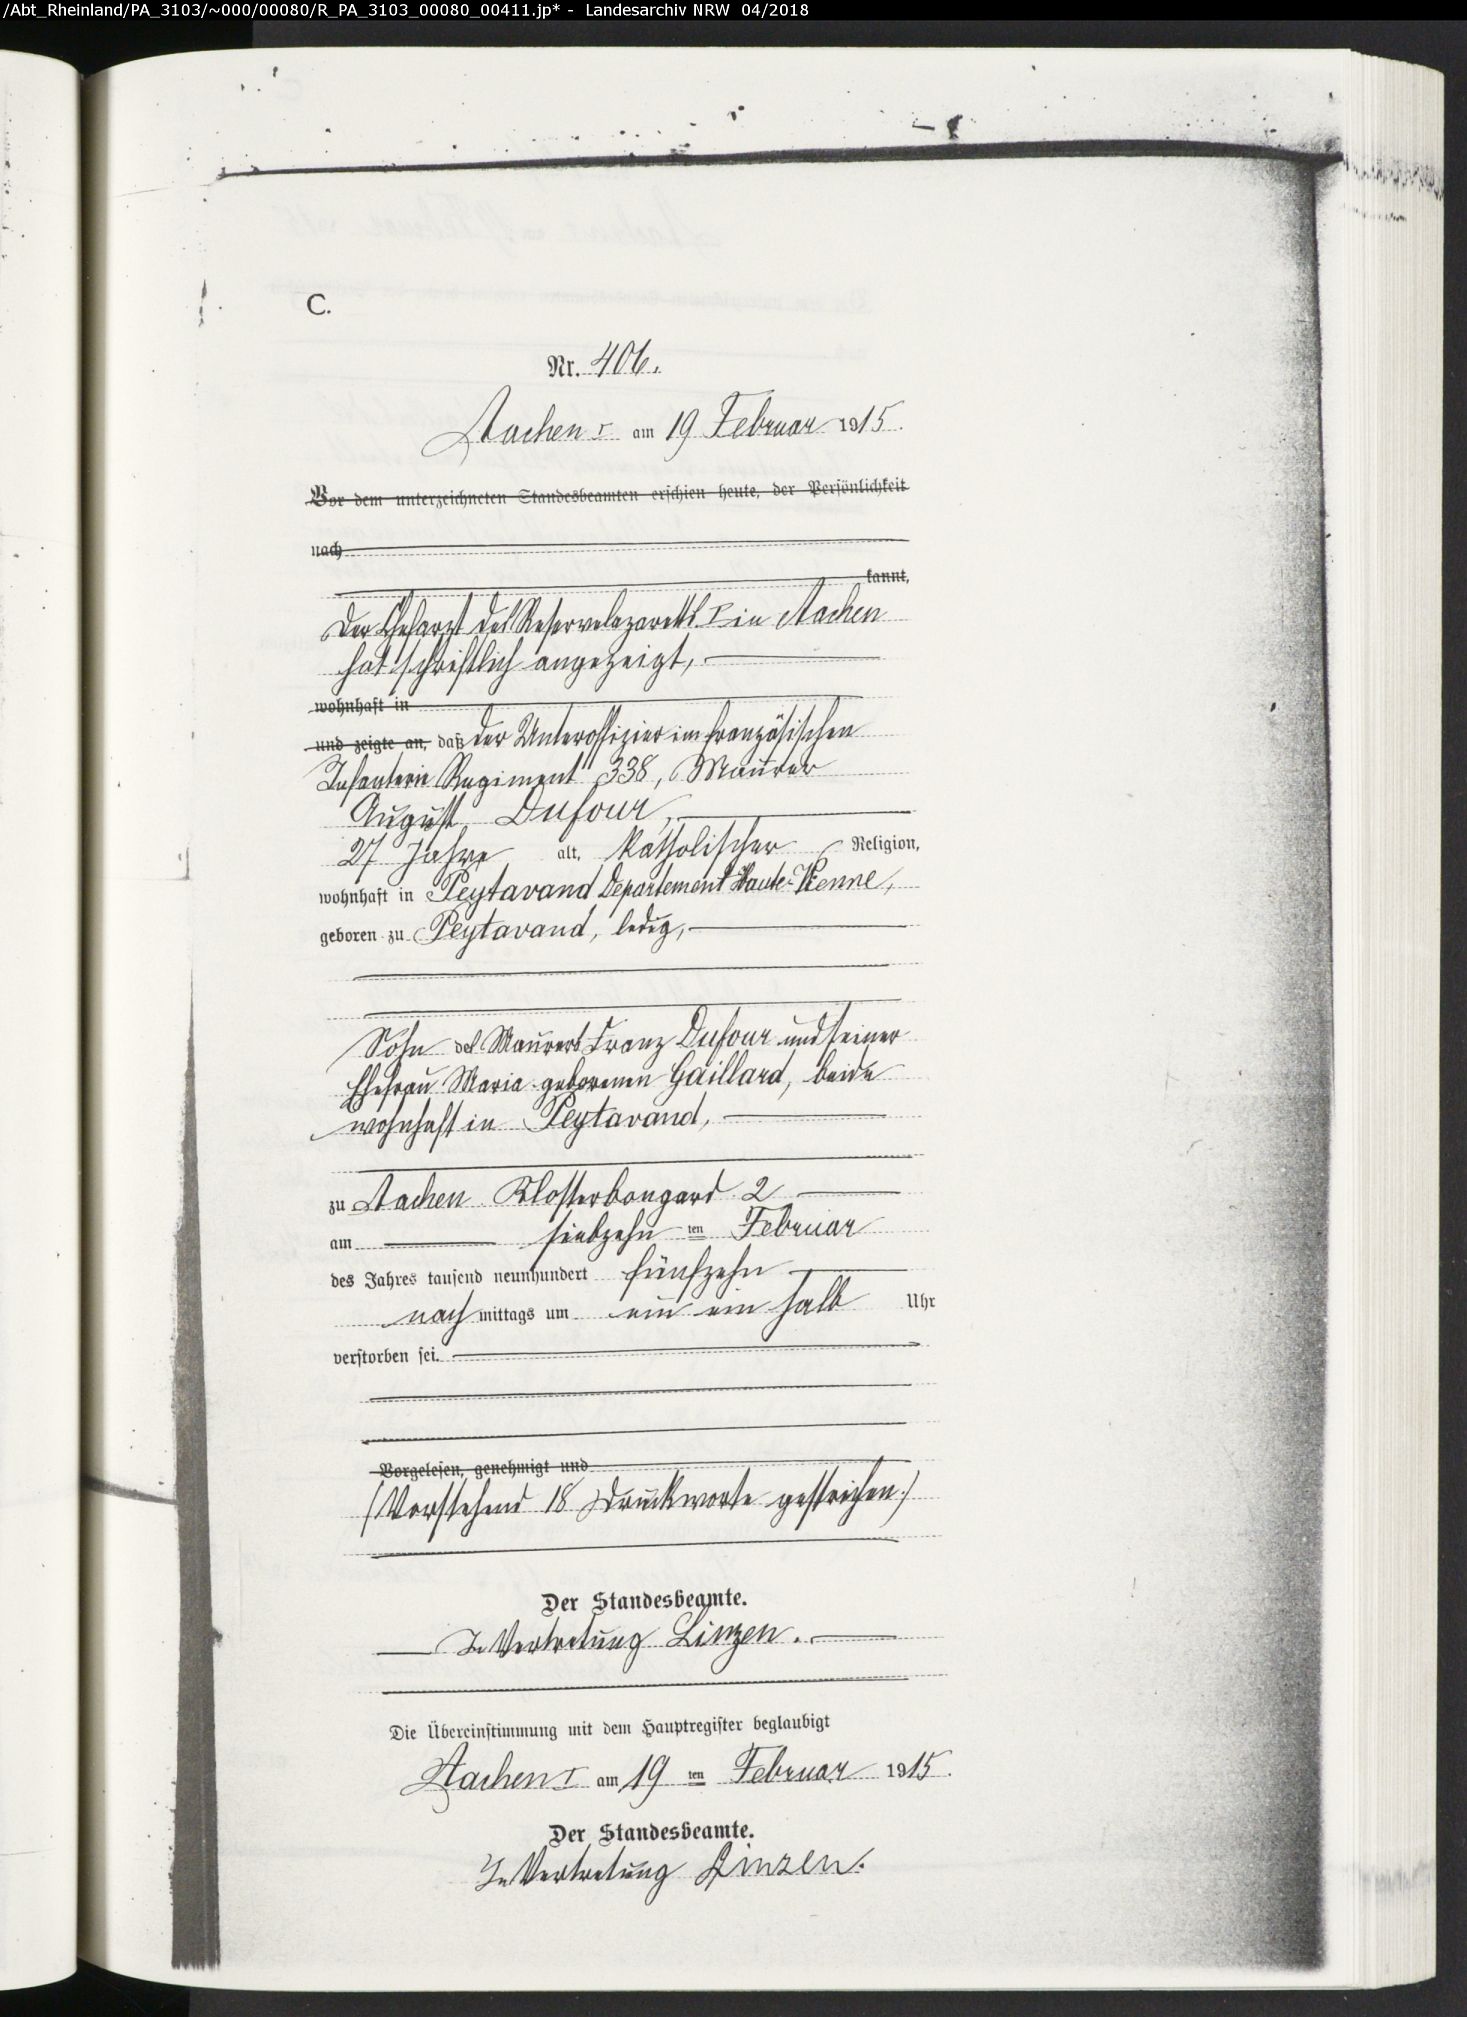 /Abt_Rheinland/PA_3103/~000/00080/R_PA_3103_00080_00411.jp* - Landesarchiv NRW 04/2018
C.
Nr. 406.
Aachen I am 19 Februar 1915.
Vor dem unterzeichneten Standesbeamten erschien heute, der Persönlichkeit
nach
kannt,
Der Chefarzt des Reservelazaretts I in Aachen
hat schriftlich angezeigt,
wohnhaft in
und zeigte an, daß der Unteroffizier im französischen
Infanterie Regiment 338, Maurer
August Dufour,
27 Jahre alt, katholischer Religion,
wohnhaft in Peytavand Departement Haute-Vienne,
geboren zu Peytavand, ledig,
Sohn des Maurers Franz Dufour und seiner
Ehefrau Maria geborenen Gaillard, beide
wohnhaft in Peytavand,
zu Aachen Klosterbongard 2
am siebzehn ten Februar
des Jahres tausend neunhundert fünfzehn
nach mittags um ein ein halb Uhr
verstorben sei.
Vorgelesen, genehmigt und
(Vorstehend 18 Druckworte gestrichen.)
Der Standesbeamte.
In Vertretung Linzen.
Die Übereinstimmung mit dem Hauptregister beglaubigt
Aachen I am 19 ten Februar 1915.
Der Standesbeamte.
In Vertretung Linzen.